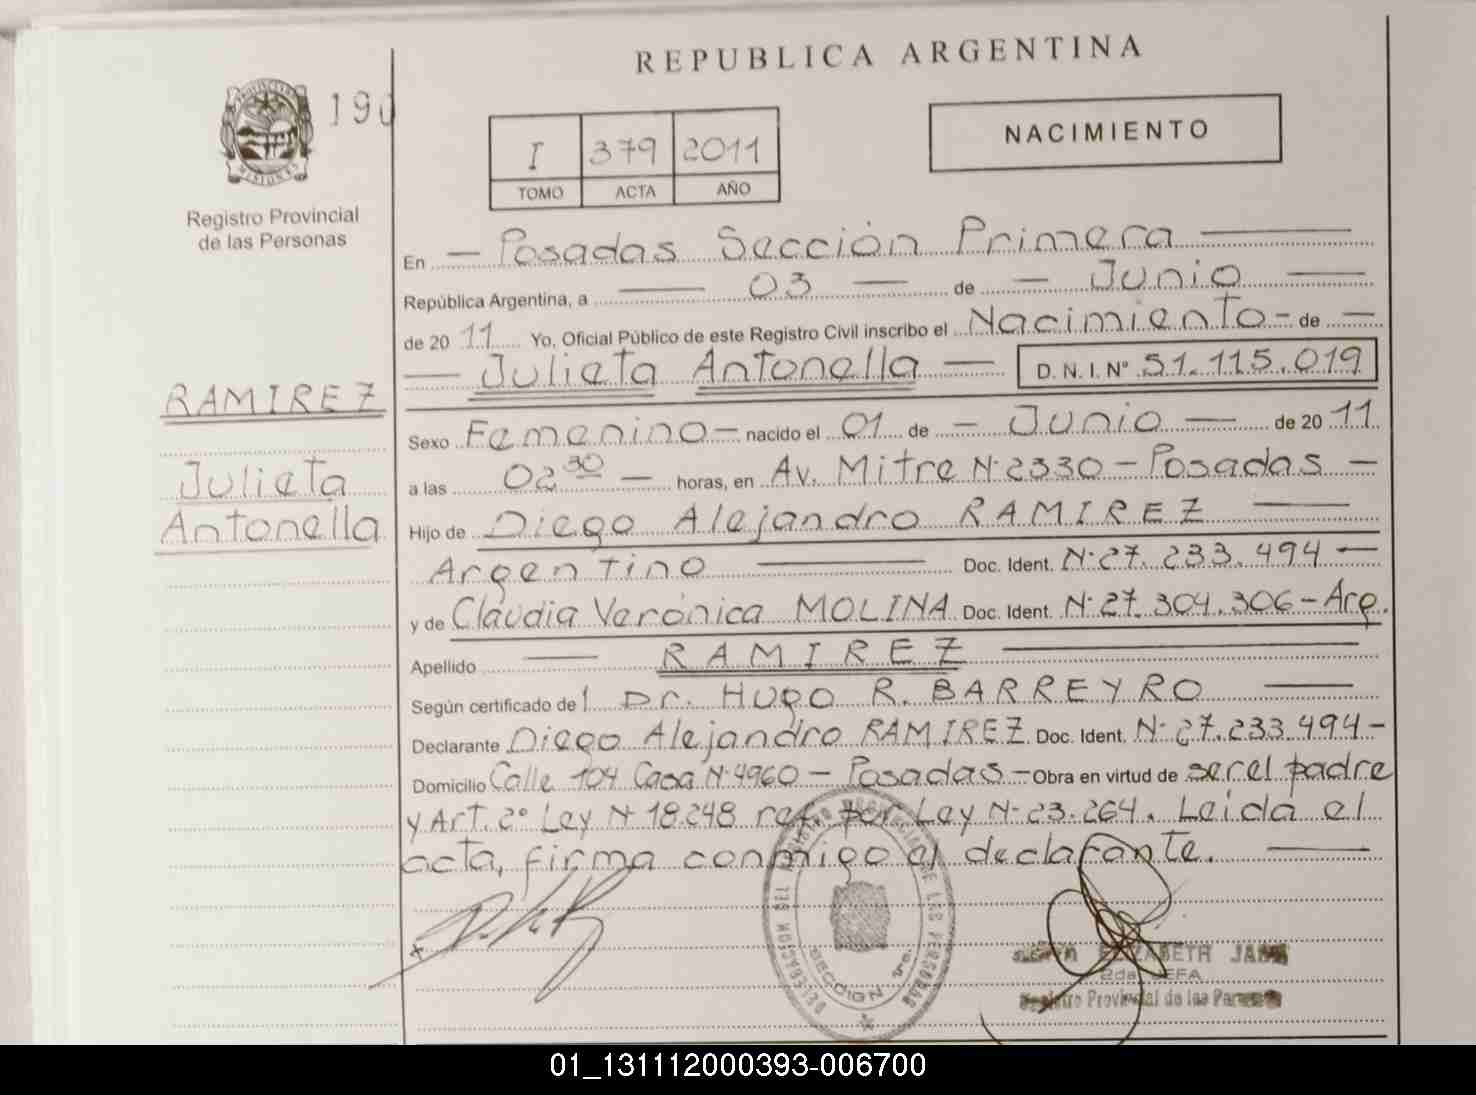 REPUBLICA ARGENTINA
190
I 379 2011
TOMO ACTA AÑO
NACIMIENTO
Registro Provincial
de las Personas
En Posadas Sección Primera
República Argentina, a 03 de Junio
de 2011 Yo, Oficial Público de este Registro Civil inscribo el Nacimiento - de
Julieta Antonella D. N. I. Nº 51.115.019
RAMIREZ
Julieta
Antonella
Sexo Femenino - nacido el 01 de - Junio de 2011
a las 02 30 horas, en Av. Mitre N· 2330 - Posadas -
Hijo de Diego Alejandro RAMIREZ
Argentino Doc. Ident. N· 27.233.494
y de Claudia Verónica MOLINA Doc. Ident. N· 27.304.306 - Arg.
Apellido RAMIREZ
Según certificado del Dr. Hugo R. BARREYRO
Declarante Diego Alejandro RAMIREZ Doc. Ident. N· 27.233.494 -
Domicilio Calle 104 Casa N· 4960 - Posadas - Obra en virtud de ser el padre
y Art. 2º Ley Nº 18.248 ref. por Ley N· 23.264. Leida el
acta, firma conmigo el declarante.
DELEGACION DEL REGISTRO PROVINCIAL DE LAS PERSONAS
SECCION 1ª
ELIZABETH
2da JEFA
Registro Provincial de las Personas
01_131112000393-006700